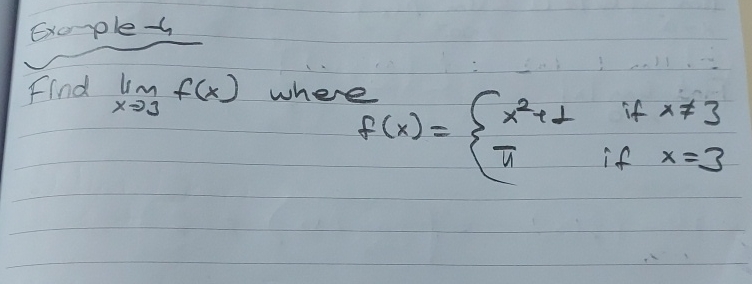 Example-4
Find lim f(x) where
x→3
f(x) = { x²+1 if x≠3
π if x=3